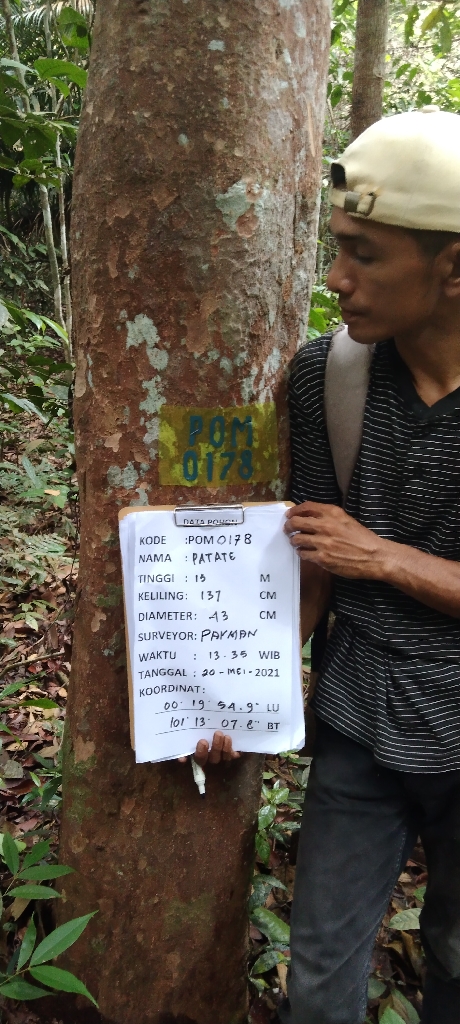 POM
0178
DATA POHON
KODE :POM0178
NAMA : PATATE
TINGGI : 15 M
KELILING: 137 CM
DIAMETER: 43 CM
SURVEYOR: PAYMAN
WAKTU : 13.35 WIB
TANGGAL : 20-MEI-2021
KOORDINAT:
00° 19' 54.9" LU
101° 13' 07.8" BT